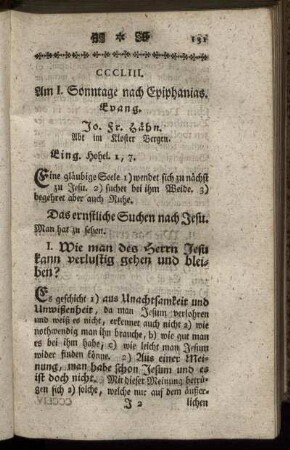 131
CCCLIII.
Am I. Sonntage nach Epiphanias.
Evang.
Jo. Fr. Hähn.
Abt im Kloster Bergen.
Eing. Hohel. 1, 7.
Eine gläubige Seele 1) wendet sich zu nächst
zu Jesu. 2) suchet bei ihm Weide. 3)
begehret aber auch Ruhe.
Das ernstliche Suchen nach Jesu.
Man hat zu sehen.
I. Wie man des Herrn Jesu
kann verlustig gehen und blei-
ben?
Es geschicht 1) aus Unachtsamkeit und
Unwißenheit, da man Jesum verlohren
und weiß es nicht, erkennet auch nicht a) wie
nothwendig man ihn brauche, b) wie gut man
es bei ihm habe, c) wie leicht man Jesum
wider finden könne. 2) Aus einer Mei-
nung, man habe schon Jesum und es
ist doch nicht. Mit dieser Meinung betrü-
gen sich a) solche, welche nur auf dem äußer-
J 2 lichen